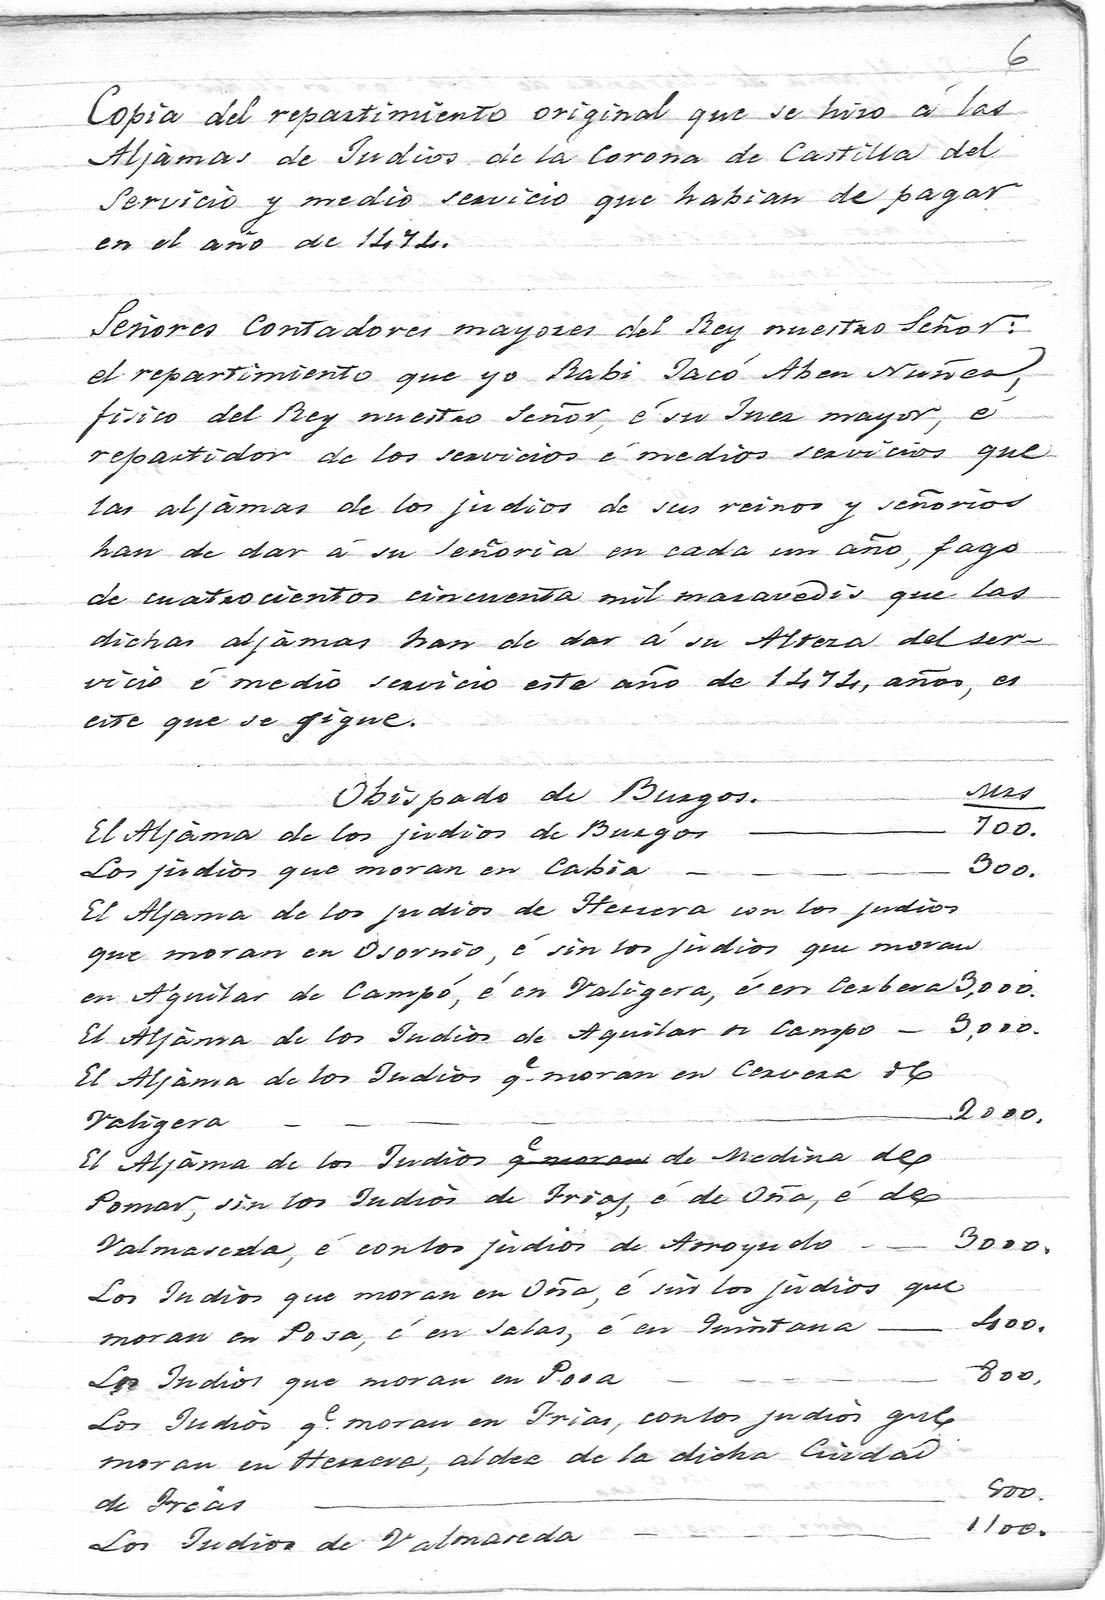 6
Copia del repartimiento original que se hizo á las
Aljámas de Judios de la Corona de Castilla del
Servicio y medio servicio que habian de pagar
en el año de 1474.
Señores Contadores mayores del Rey nuestro Señor:
el repartimiento que yo Rabi Jacó Aben Nuñez,
fisico del Rey nuestro Señor, é su Juez mayor, é
repartidor de los servicios é medios servicios que
las aljámas de los judios de sus reinos y señorios
han de dar á su Señoria en cada un año, fago
de cuatrocientos cincuenta mil maravedis que las
dichas aljámas han de dar á su Alteza del ser-
vicio é medio servicio este año de 1474, años, es
este que se sigue.
Obispado de Burgos. Mrs
El Aljáma de los judios de Burgos — 700.
Los judios que moran en Cabia — 300.
El Aljama de los judios de Herrera con los judios
que moran en Osornio, é sin los judios que moran
en Aguilar de Campó, é en Valigera, é en Cerbera 3,000.
El Aljáma de los Judios de Aguilar de Campo — 3,000.
El Aljáma de los Judios q.e moran en Cervera de
Valigera — 2000.
El Aljáma de los Judios q.e moran de Medina de
Pomar, sin los Judios de Frias, é de Oña, é de
Valmaseda, é con los judios de Arroyudo — 3000.
Los Judios que moran en Oña, é sin los judios que
moran en Posa, é en Salas, é en Quintana — 400.
Los Judios que moran en Posa — 800.
Los Judios q.e moran en Frias, con los judios que
moran en Herrera, aldea de la dicha Ciudad
de Frias — 800.
Los Judios de Valmaseda — 1100.